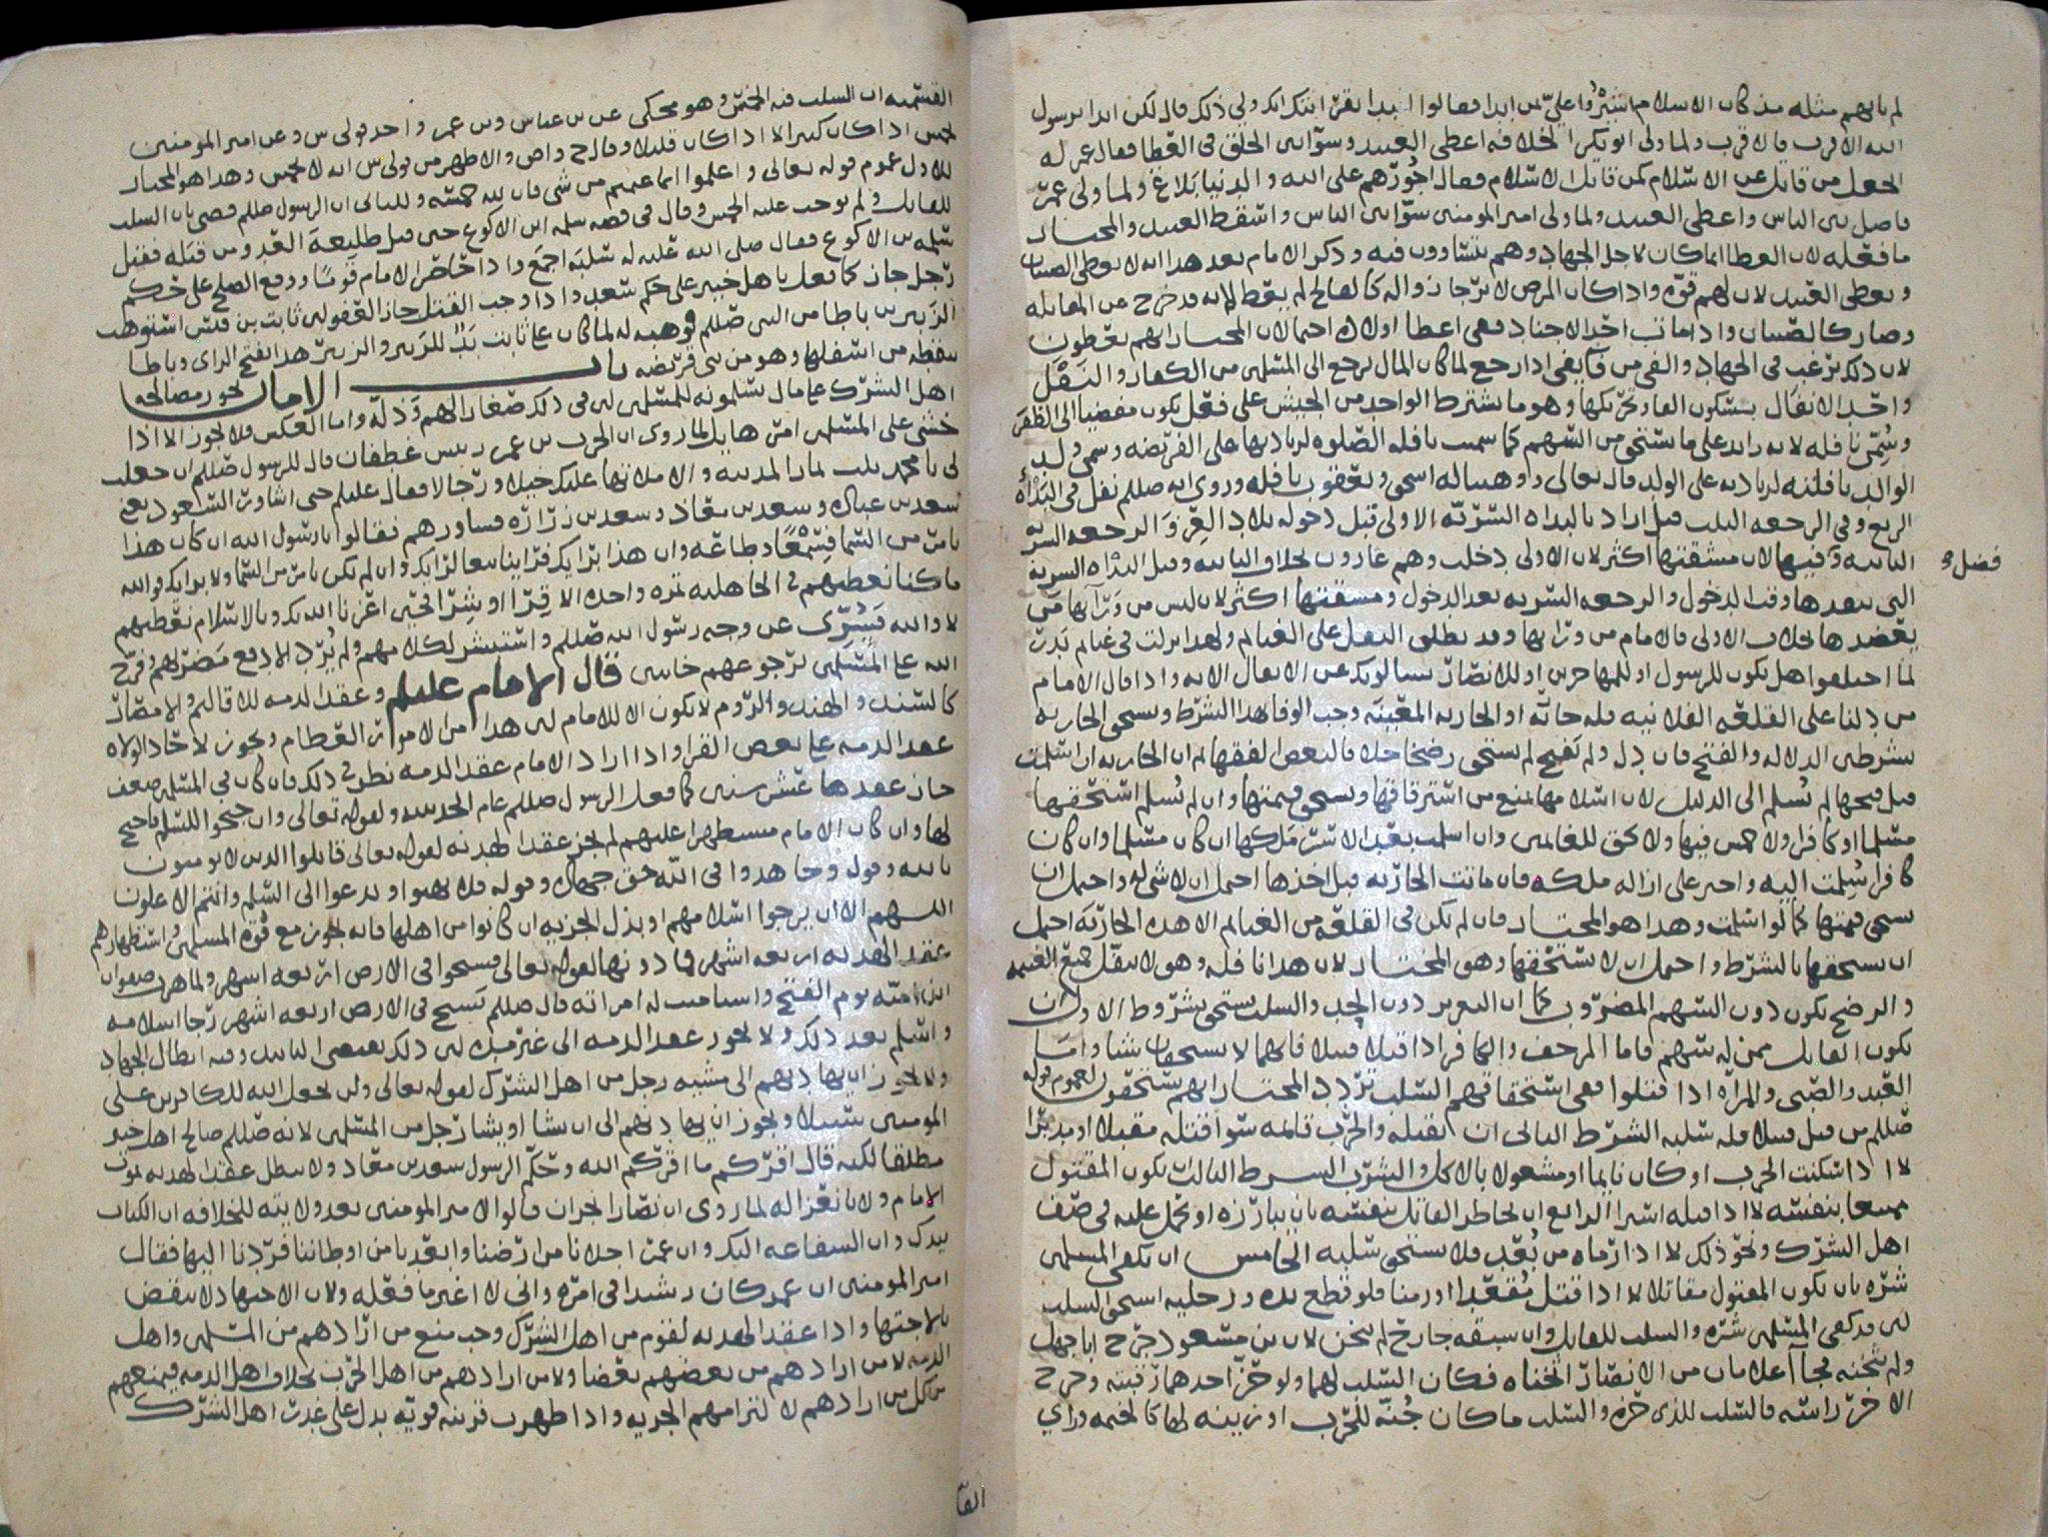 لم ياتهم مثله مذ كان الاسلام ابشروا علي من ابدا فقالوا ابدا بقرابتك ابك وبي ذلك قال لكن ابدا برسول
الله الاقرب فالاقرب ولما ولي ابو بكر الخلافه اعطى العبيد وسوا بين الخلق في العطا فقال عمر له
اجعل من قاتل عن الاسلام كمن قاتل الاسلام فقال اجورهم على الله والدنيا بلاغ ولما ولي عمر
فاضل بين الناس واعطى العبيد ولما ولي امير المومنين سوا بين الناس واسقط العبيد والمختار
ما فعله لان العطا انما كان لاجل الجهاد وهم يتساوون فيه وذكر الامام بعد هذا انه لا يعطى الصبيان
ويعطى العبيد لان لهم قوه واذا كان المرض لا يرجا زواله كالفالج لم يعط لانه قد خرج عن المقاتله
وصار كالصبيان واذا مات احد الاجناد ففي اعطا اولاده احتمالان المختار انهم يعطون
لان ذلك ترغب في الجهاد والفي من فا يفي اذا رجع لما كان المال يرجع الى المسلمين من الكفار والنفل
واحد الانفال بسكون الفا وتحريكها وهو ما يشترط الواحد من الجيش على فعل يكون مفضيا الى الظفر
وسمي نافله لانه زايد على ما يستحق من السهم كما سميت نافله الصلوه لزيادتها على الفريضه وسمي ولد
الوالد نافلته لزيادته على الولد قال تعالى ووهبنا له اسحق ويعقوب نافله وروي انه صللم نفل في البدأه
الربع وفي الرجعه الثلث قيل اراد بالبداه السريه الاولى قبل دخوله بلاد العدو والرجعه السريه
الثانيه وفيها لان مشقتها اكثر لان الاولى دخلت وهم غارون بخلاف الثانيه وقيل البداه السريه
فصل
التي يبعدها وقت الدخول والرجعه السريه بعد الدخول ومشقتها اكثر لان ليس من ورائها من
يعضدها بخلاف الاولى فالامام من ورائها وقد يطلق النفل على الغنايم ولهذا نزلت في غنايم بدر
لما اختلفوا هل يكون للرسول او للمهاجرين او للانصار يسالونك عن الانفال الايه واذا قال الامام
من دلنا على القلعه الفلانيه فله جايه او الجاريه المعينه وجب الوفا بهذا الشرط ويستحق الجاريه
بشرطين الدلاله والفتح فان دل ولم تفتح لم يستحق رضخا خلافا لبعض الفقها ثم ان الجاريه ان اسلمت
قبل فتحها لم تسلم الى الدليل لان اسلامها يمنع من استرقاقها ويستحق قيمتها وان لم تسلم استحقها
مسلما او كافرا ولا خمس فيها ولا حق للغانمين وان اسلمت بعد الاسر ملكها ان كان مسلما وان كان
كافرا سلمت اليه واجبر على ازاله ملكه فان ماتت الجاريه قبل اخذها احتمل ان لا شي له واحتمل ان
يستحق قيمتها كما لو اسلمت وهذا هو المختار فان لم تكن في القلعه من الغنايم الا هذه الجاريه احتمل
ان يستحقها بالشرط واحتمل ان لا يستحقها وهو المختار لان هذا نافله وهو لا ينفل جميع الغنيمه
والرضخ يكون دون السهم المضروب كما ان التعزير دون الحد والسلب يستحق بشروط الاول ان
يكون القاتل ممن له سهم فاما المرجف والكافر اذا قتلا قتيلا فانهما لا يستحقان شيا واما
العبد والصبي والمراه اذا قتلوا ففي استحقاقهم السلب تردد المختار انهم يستحقون لعموم قوله
صللم من قتل قتيلا فله سلبه الشرط الثاني ان يقتله والحرب قايمه سوا قتله مقبلا او مدبرا
لا اذا سكنت الحرب او كان نايما او مشغولا بالاكل والشرب الشرط الثالث يكون المقتول
ممتنعا بنفسه لا اذا قتله اسيرا الرابع ان يخاطر القاتل بنفسه بان يبارزه او يحمل عليه في صف
اهل الشرك ونحو ذلك لا اذا رماه من بعد فلا يستحق سلبه الخامس ان يكفي المسلمين
شره بان يكون المقتول مقاتلا لا اذا قتل مقعدا او زمنا فلو قطع يده ورجليه استحق السلب
لان قد كفى المسلمين شره والسلب للقاتل وان سبقه جارح لم يثخن لان بن مسعود جرح ابا جهل
ولم يثخنه فجآ غلامان من الانصار اثخناه فكان السلب لهما ولو حز احدهما رقبته وجرح
الاخر راسه فالسلب للذي حزه والسلب ما كان جنه للحرب او زينه لها كالخيمه وراي
الفا
القسميه ان السلب فيه الخمس وهو محكي عن بن عباس وبن عمر واحد قولي س وعن امير المومنين
يخمس اذا كان كثيرا لا اذا كان قليلا وقال ح واص والاظهر من قولي س انه لا يخمس وهذا هو المختار
للاول عموم قوله تعالى واعلموا انما غنمتم من شي فان لله خمسه وللثاني ان الرسول صللم قضى بان السلب
للقاتل ولم يوجب عليه الخمس وقال في قصه سلمه ابن الاكوع حين قتل طليعة العدو من قتله فقيل
سلمه بن الاكوع فقال صلى الله عليه له سلبه اجمع واذا حاصر الامام قوما ووقع الصلح على حكم
رجل جاز كما فعل باهل خيبر على حكم سعد واذا وجب القتل جاز العفو لان ثابت بن قيس استوهب
الزبير بن باطا من النبي صللم فوهبه له لما كان على ثابت يد للزبير والزبير هذا بفتح الزاي وباطا
بنقطه من اسفلها وهو من بني قريضه باب الامان يجوز مصالحه
اهل الشرك على مال يسلمونه للمسلمين لان في ذلك صغارا لهم وذله واما العكس فلا يجوز الا اذا
خشي على المسلمين امر هايل لما روي ان الحرث بن عمر رييس غطفان قال للرسول صللم ان جعلت
لي يا محمد ثلث ثمار المدينه والا ملاتها عليك خيلا ورجالا فقال عليلم حتى اشاور السعود يعني
سعد بن عباده وسعد بن معاذ وسعد بن زراره فشاورهم فقالوا يا رسول الله ان كان هذا
بامر من السما فسمعا وطاعه وان هذا برايك فراينا تبعا لرايك وان لم يكن بامر من السما ولا برايك فوالله
ما كنا نعطيهم في الجاهليه تمره واحده الا قرا او شرا فحين اعزنا الله بك وبالاسلام نعطيهم
لا والله فسري عن وجه رسول الله صللم واستبشر لكلامهم ولم يرد الا دفع مضرتهم وفرج
الله على المسلمين برجوعهم خايبين قال الامام عليلم وعقد الذمه للاقاليم والامصار
كالسند والهند والروم لا يكون الا للامام لان هذا من الامور العظام ويجوز لاحاد الولاه
عقد الذمه على بعض القرا واذا اراد الامام عقد الذمه نظر في ذلك فان كان في المسلمين ضعف
جاز عقدها عشر سنين كما فعل الرسول صللم عام الحديبيه ولقوله تعالى وان جنحوا للسلم فاجنح
لها وان كان الامام مستظهرا عليهم لم يجز عقد الهدنه لقوله تعالى قاتلوا الذين لا يومنون
بالله وقوله وجاهدوا في الله حق جهاده وقوله فلا تهنوا وتدعوا الى السلم وانتم الاعلون
اللهم الا ان يرجوا اسلامهم او بذل الجزيه ان كانوا من اهلها فانه يجوز مع قوة المسلمين واستظهارهم
عقد الهدنه اربعه اشهر فما دونها لقوله تعالى فسيحوا في الارض اربعه اشهر ولما هرب صفوان
ابن اميه يوم الفتح واستامنت له امراته قال صللم تسيح في الارض اربعه اشهر رجا اسلامه
واسلم بعد ذلك ولا يجوز عقد الذمه الى غير مده لان ذلك يقتضي التابيد وفيه ابطال الجهاد
ولا يجوز ان يهادنهم الى مشيه رجل من اهل الشرك لقوله تعالى ولن يجعل الله للكافرين على
المومنين سبيلا ويجوز ان يهادنهم الى ان يشا او يشا رجل من المسلمين لانه صللم صالح اهل خيبر
مطلقا لكنه قال اقركم ما اقركم الله وحكم الرسول سعد بن معاذ ولا يبطل عقد الهدنه بموت
الامام ولا بانعزاله لما روي ان نصارا نجران قالوا لامير المومنين بعد ولايته للخلافه ان الكتاب
بيدك وان الشفاعه اليك وان عمر اجلانا من ارضنا وابعدنا من اوطاننا فردنا اليها فقال
امير المومنين ان عمر كان رشيدا في امره واني لا اغير ما فعله ولان الاجتهاد لا ينقض
بالاجتهاد واذا عقد الهدنه لقوم من اهل الشرك وجب منع من ارادهم من المسلمين واهل
الذمه لا من ارادهم من بعضهم بعضا ولا من ارادهم من اهل الحرب بخلاف اهل الذمه فيمنعهم
من كل من ارادهم لالتزامهم الجزيه واذا ظهرت قرينه قويه يدل على غدر اهل الشرك